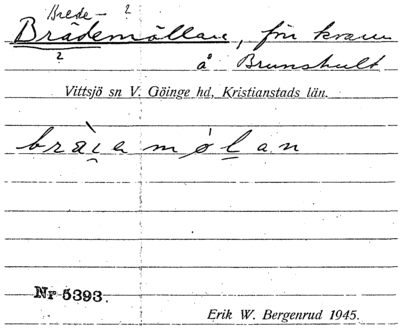 Brede- ?
Brädemöllan, förr kvarn
?
å Brunshult
Vittsjö sn V. Göinge hd, Kristianstads län.
bräi̯emølan
Nr 5393.
Erik W. Bergenrud 1945.